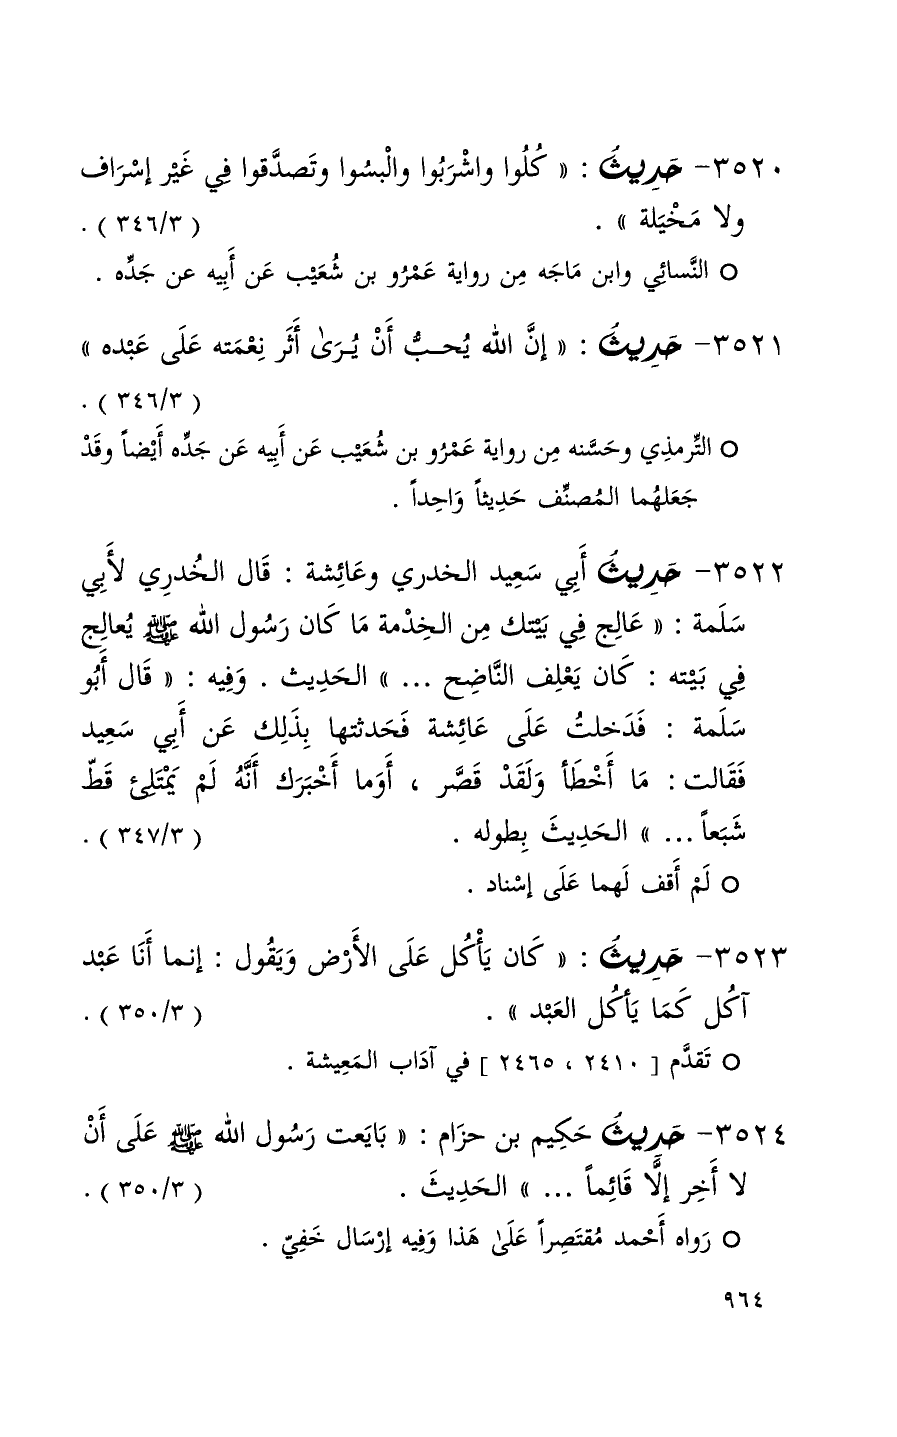 ٣٥٢٠- حَدِيثُ : « كُلُوا واشْرَبُوا والْبسُوا وتَصدَّقوا فِي غَيْر إسْرَاف
ولا مَخْيَلة » . ( ٣٤٦/٣ ) .
○ النَّسائِي وابن مَاجَه مِن رواية عَمْرُو بن شُعَيْب عَن أَبِيه عن جَدِّه .
٣٥٢١- حَدِيثُ : « إنَّ الله يُحـبُّ أَنْ يُـرَىٰ أَثَر نِعْمَته عَلَى عَبْده »
( ٣٤٦/٣ ) .
○ التِّرمذِي وحَسَّنه مِن رواية عَمْرُو بن شُعَيْب عَن أَبِيه عَن جَدِّه أَيْضاً وقَدْ
جَعَلهُما المُصنِّف حَدِيثاً وَاحِداً .
٣٥٢٢- حَدِيثُ أَبِي سَعِيد الخدري وعَائِشة : قَال الخُدرِي لأَبِي
سَلَمة : « عَالِج فِي بَيْتك مِن الخِدْمة مَا كَان رَسُول الله ﷺ يُعالِج
فِي بَيْته : كَان يَعْلِف النَّاضِح ... » الحَدِيث . وَفِيه : « قَال أَبُو
سَلَمة : فَدَخلتُ عَلَى عَائِشة فَحَدثتها بِذَلِك عَن أَبِي سَعِيد
فَقَالت : مَا أَخْطَأ وَلَقَدْ قَصَّر ، أَوَما أَخْبَرَك أَنَّهُ لَمْ يَمْتَلِئ قَطّ
شَبَعاً ... » الحَدِيثَ بِطوله . ( ٣٤٧/٣ ) .
○ لَمْ أَقف لَهما عَلَى إسْناد .
٣٥٢٣- حَدِيثُ : « كَان يَأْكُل عَلَى الأَرْض وَيَقُول : إنما أَنَا عَبْد
آكُل كَمَا يَأكُل العَبْد » . ( ٣٥٠/٣ ) .
○ تَقدَّم [ ٢٤١٠ ، ٢٤٦٥ ] في آدَاب المَعِيشة .
٣٥٢٤- حَدِيثُ حَكِيم بن حزَام : « بَايَعت رَسُول الله ﷺ عَلَى أَنْ
لا أَخِر إلَّا قَائِماً ... » الحَدِيثَ . ( ٣٥٠/٣ ) .
○ رَواه أَحْمد مُقتَصِراً عَلَىٰ هَذا وَفِيه إرْسَال خَفِيّ .
٩٦٤